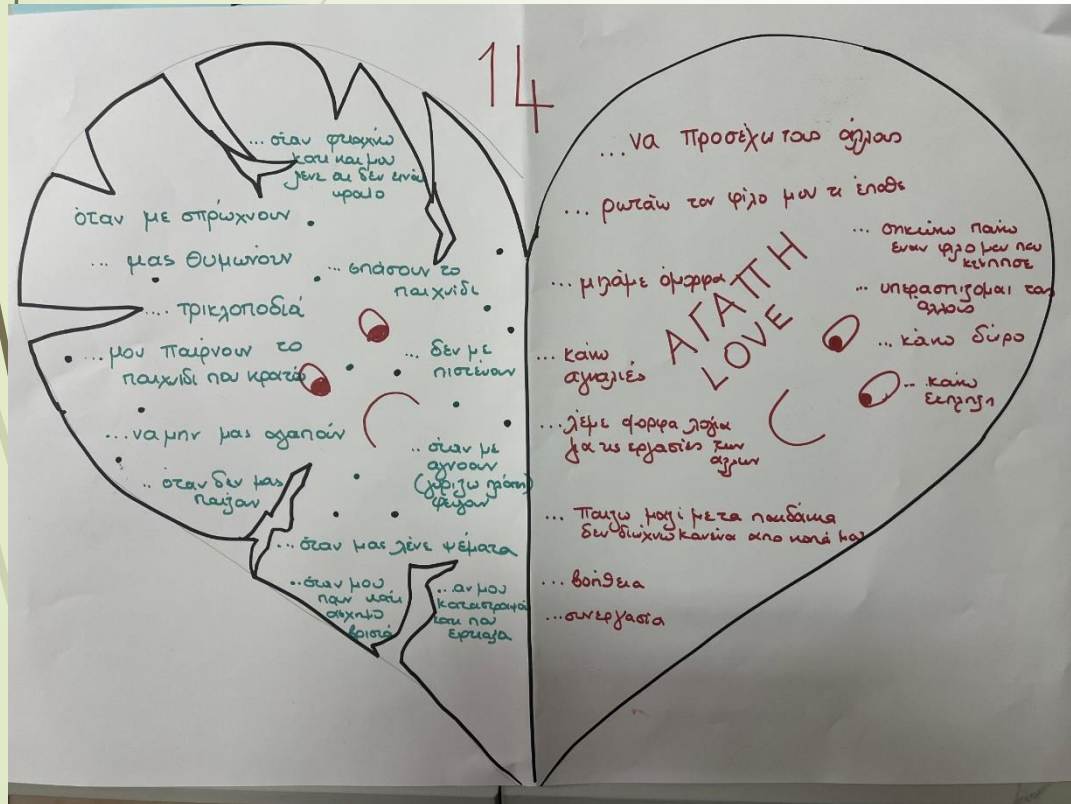 14
... όταν φτιάχνω
κάτι και μου
λένε ότι δεν είναι
ωραίο
όταν με σπρώχνουν
... μας θυμώνουν
... σπάσουν το
παιχνίδι
.... τρικλοποδιά
...μου παίρνουν το
παιχνίδι που κρατώ
... δεν με
πιστεύουν
...να μην μας αγαπούν
.. όταν με
αγνοούν
(γυρίζω πλάτη)
φεύγουν
.. όταν δεν μας
παίζουν
... όταν μας λένε ψέματα
...όταν μου
πουν κάτι
άσχημο
βρισιά
...αν μου
κάτι που
έφτιαξα
...να προσέχω τους άλλους
... ρωτάω τον φίλο μου τι έπαθε
... σηκώνω πάνω
έναν φίλο μου που
χτύπησε
...μιλάμε όμορφα
ΑΓΑΠΗ
LOVE
... υπερασπίζομαι τους
άλλους
... κάνω δώρο
... κάνω
αγκαλιές
... κάνω
έκπληξη
...λέμε όμορφα λόγια
για τις εργασίες των
άλλων
... παίζω μαζί με τα παιδάκια
δεν διώχνω κανένα από κοντά μου
... βοήθεια
...συνεργασία